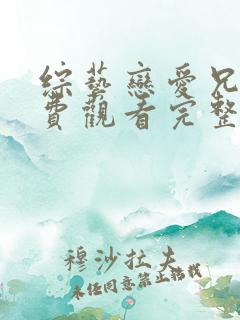 綜藝戀愛兄
費觀看完整
穆沙拉夫
未经同意禁止转载